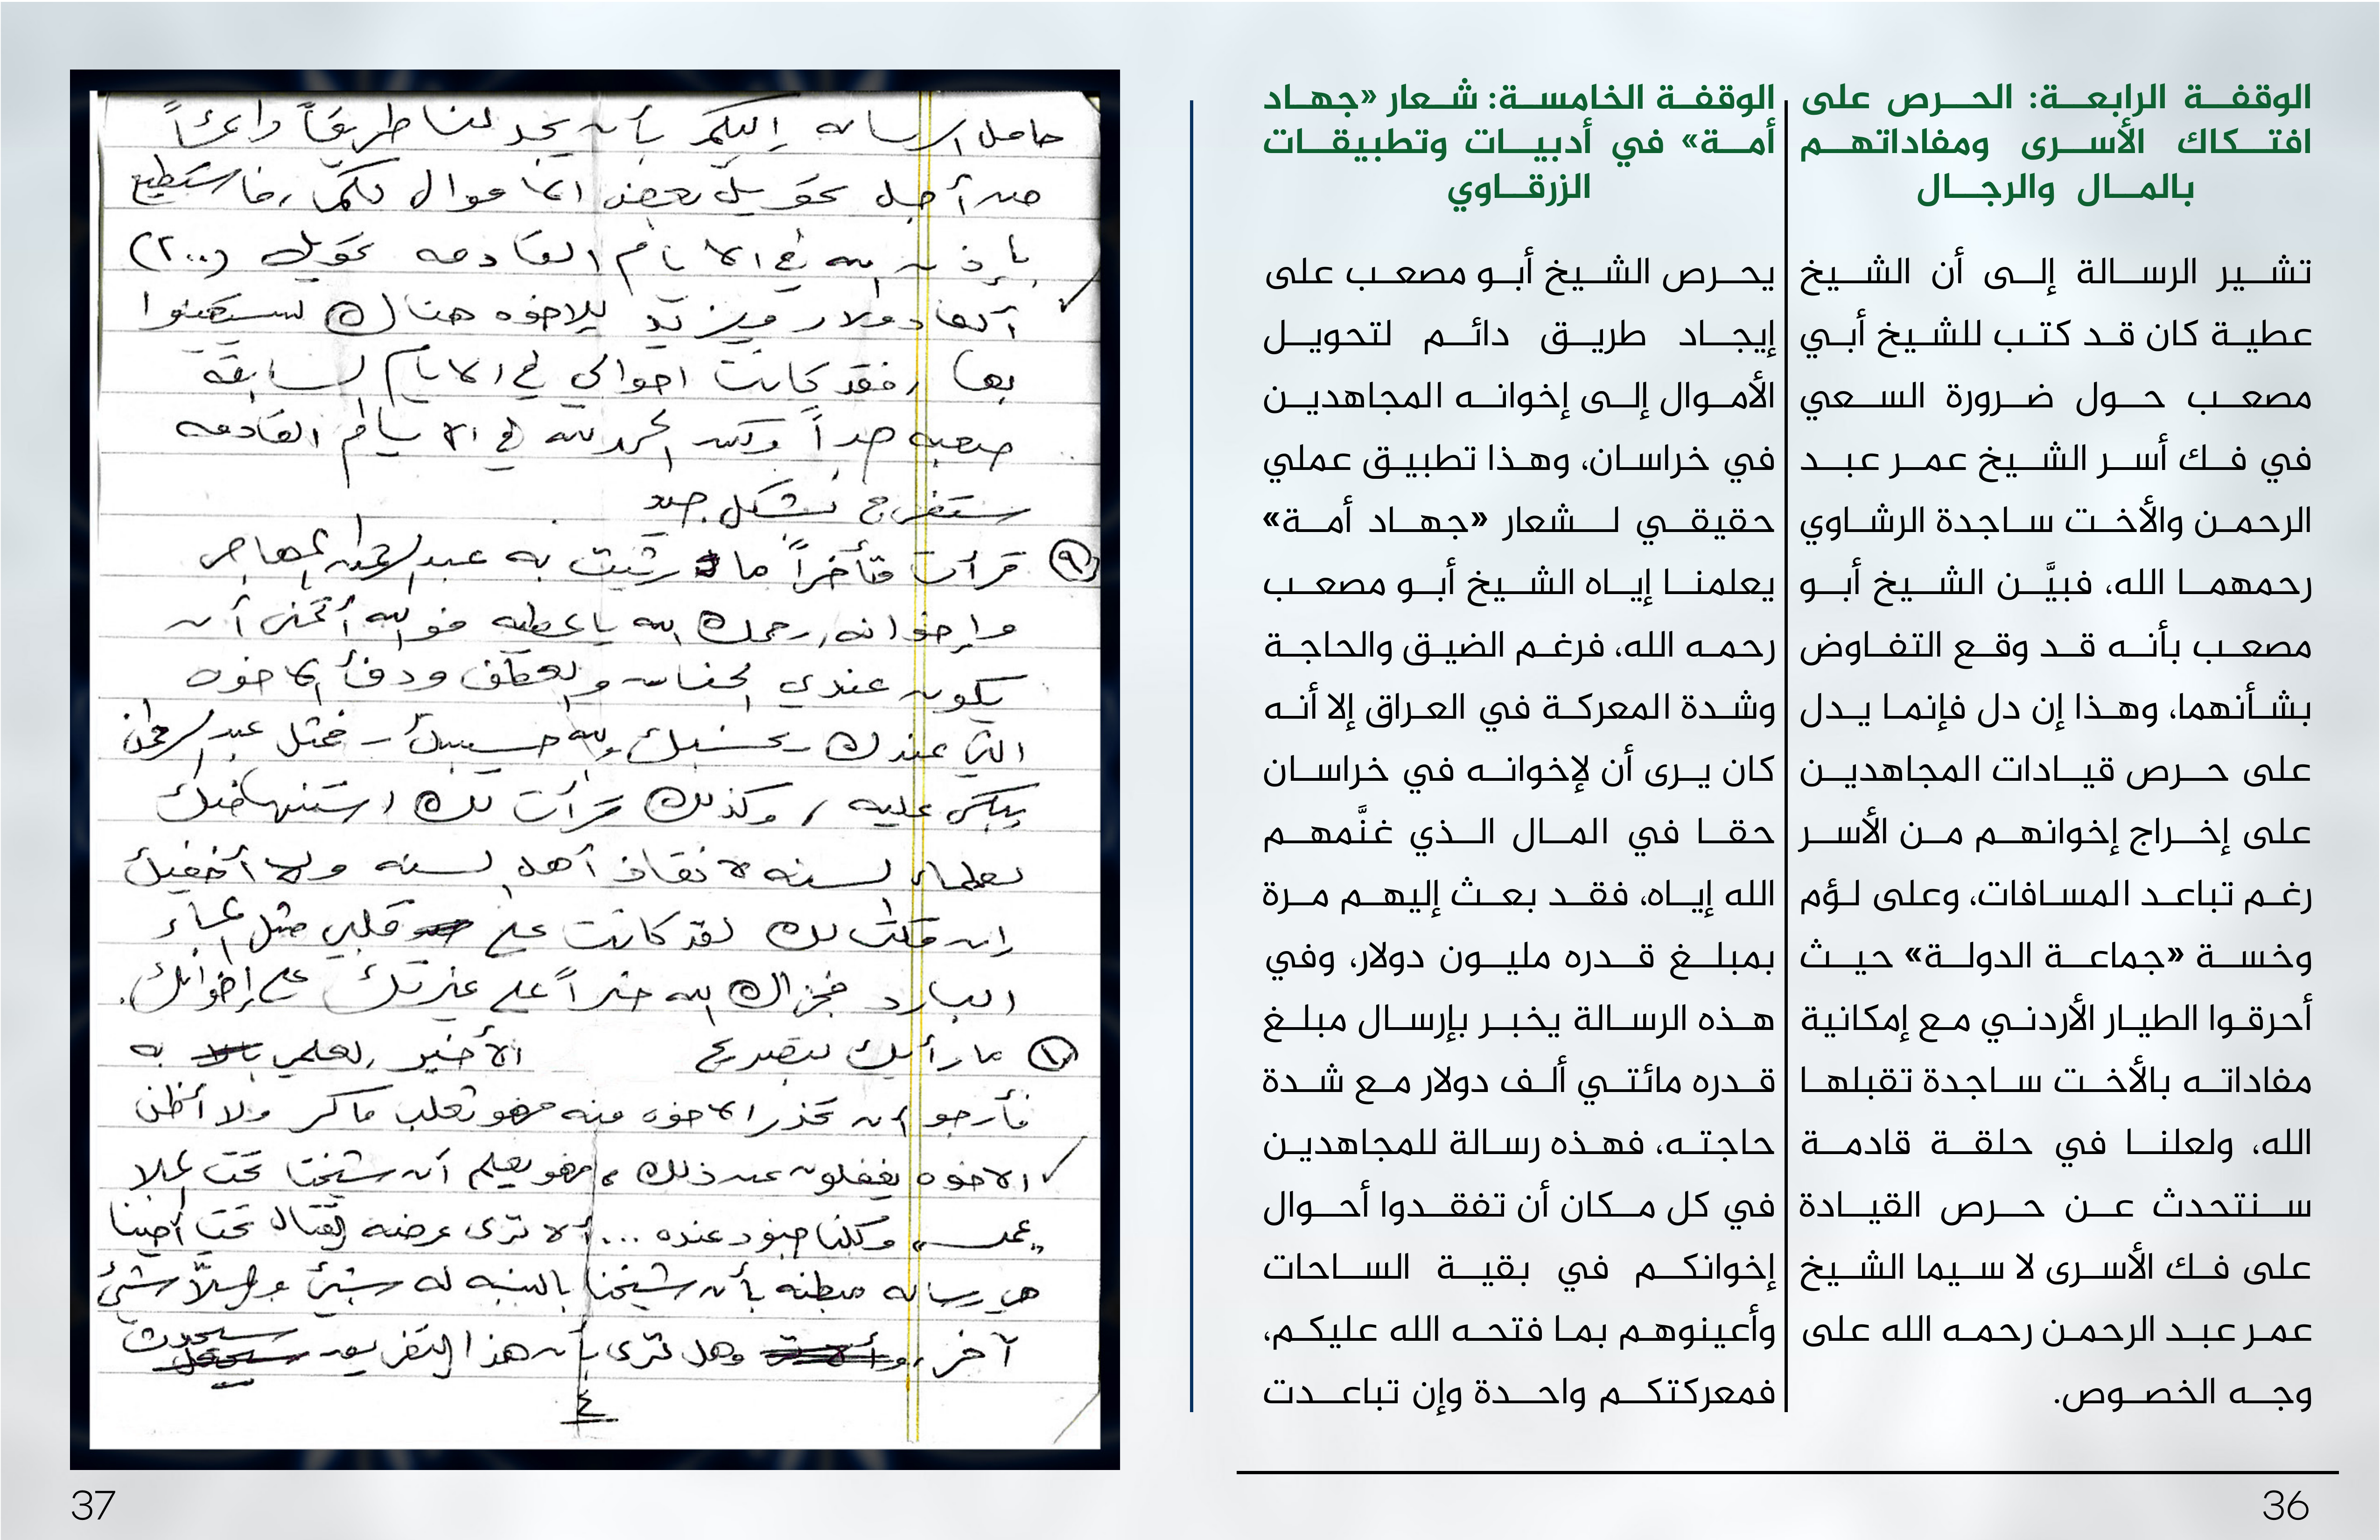 الوقفة الرابعة: الحرص على
افتكاك الأسرى ومفاداتهم
بالمال والرجال
تشير الرسالة إلى أن الشيخ
عطية كان قد كتب للشيخ أبي
مصعب حول ضرورة السعي
في فك أسر الشيخ عمر عبد
الرحمن والأخت ساجدة الرشاوي
رحمهما الله، فبيَّن الشيخ أبو
مصعب بأنه قد وقع التفاوض
بشأنهما، وهذا إن دل فإنما يدل
على حرص قيادات المجاهدين
على إخراج إخوانهم من الأسر
رغم تباعد المسافات، وعلى لؤم
وخسة «جماعة الدولة» حيث
أحرقوا الطيار الأردني مع إمكانية
مفاداته بالأخت ساجدة تقبلها
الله، ولعلنا في حلقة قادمة
سنتحدث عن حرص القيادة
على فك الأسرى لا سيما الشيخ
عمر عبد الرحمن رحمه الله على
وجه الخصوص.
الوقفة الخامسة: شعار «جهاد
أمة» في أدبيات وتطبيقات
الزرقاوي
يحرص الشيخ أبو مصعب على
إيجاد طريق دائم لتحويل
الأموال إلى إخوانه المجاهدين
في خراسان، وهذا تطبيق عملي
حقيقي لشعار «جهاد أمة»
يعلمنا إياه الشيخ أبو مصعب
رحمه الله، فرغم الضيق والحاجة
وشدة المعركة في العراق إلا أنه
كان يرى أن لإخوانه في خراسان
حقا في المال الذي غنَّمهم
الله إياه، فقد بعث إليهم مرة
بمبلغ قدره مليون دولار، وفي
هذه الرسالة يخبر بإرسال مبلغ
قدره مائتي ألف دولار مع شدة
حاجته، فهذه رسالة للمجاهدين
في كل مكان أن تفقدوا أحوال
إخوانكم في بقية الساحات
وأعينوهم بما فتحه الله عليكم،
فمعركتكم واحدة وإن تباعدت
36
حامل الرسالة إليكم بأن يجد لنا طريقاً دائماً
من أجل تحويل بعض الأموال لكم، فأستطيع
بإذن الله في الايام القادمة تحويل (٢٠٠)
ألف دولار للاخوة هناك ليستعينوا
بها، فقد كانت احوالي في الايام السابقة
صعبة جداً ولكن الحمد لله في الايام القادمة
ستفرج بشكل جيد
٩ قرأت متأخراً ما رثيت به عبد الرحمن المهاجر
وإخوانه، رحمك الله يا عطية فوالله أتمنى أن
يكون عندي الحنان والعطف ودفأ الاخوة
التي عندك - نحسبك والله حسيبك - فمثل عبد الرحمن
يبكى عليه، وكذلك قرأت لك استنهاضك
لعلماء السنة لانقاذ أهل السنة ولا أخفيك
إن قلت لك لقد كانت على قلبي مثل الماء
البارد فجزاك الله خيراً على غيرتك على إخوانك.
١٠ ما رأيك بتصريح الأخير، لعلمي به
فأرجو أن تحذر الاخوة منه فهو ثعلب ماكر ولا أظن
الاخوة يغفلون عن ذلك، فهو يعلم أن شيخنا تحت الملا
"عمر" وكلنا جنود عنده ... ألا ترى عرضه القتال تحت
هي رسالة مبطنة بأن شيخنا بالنسبة له شيئ و شيئ
آخر، وهل ترى بأن هذا التفريق سيحدث
٤
37